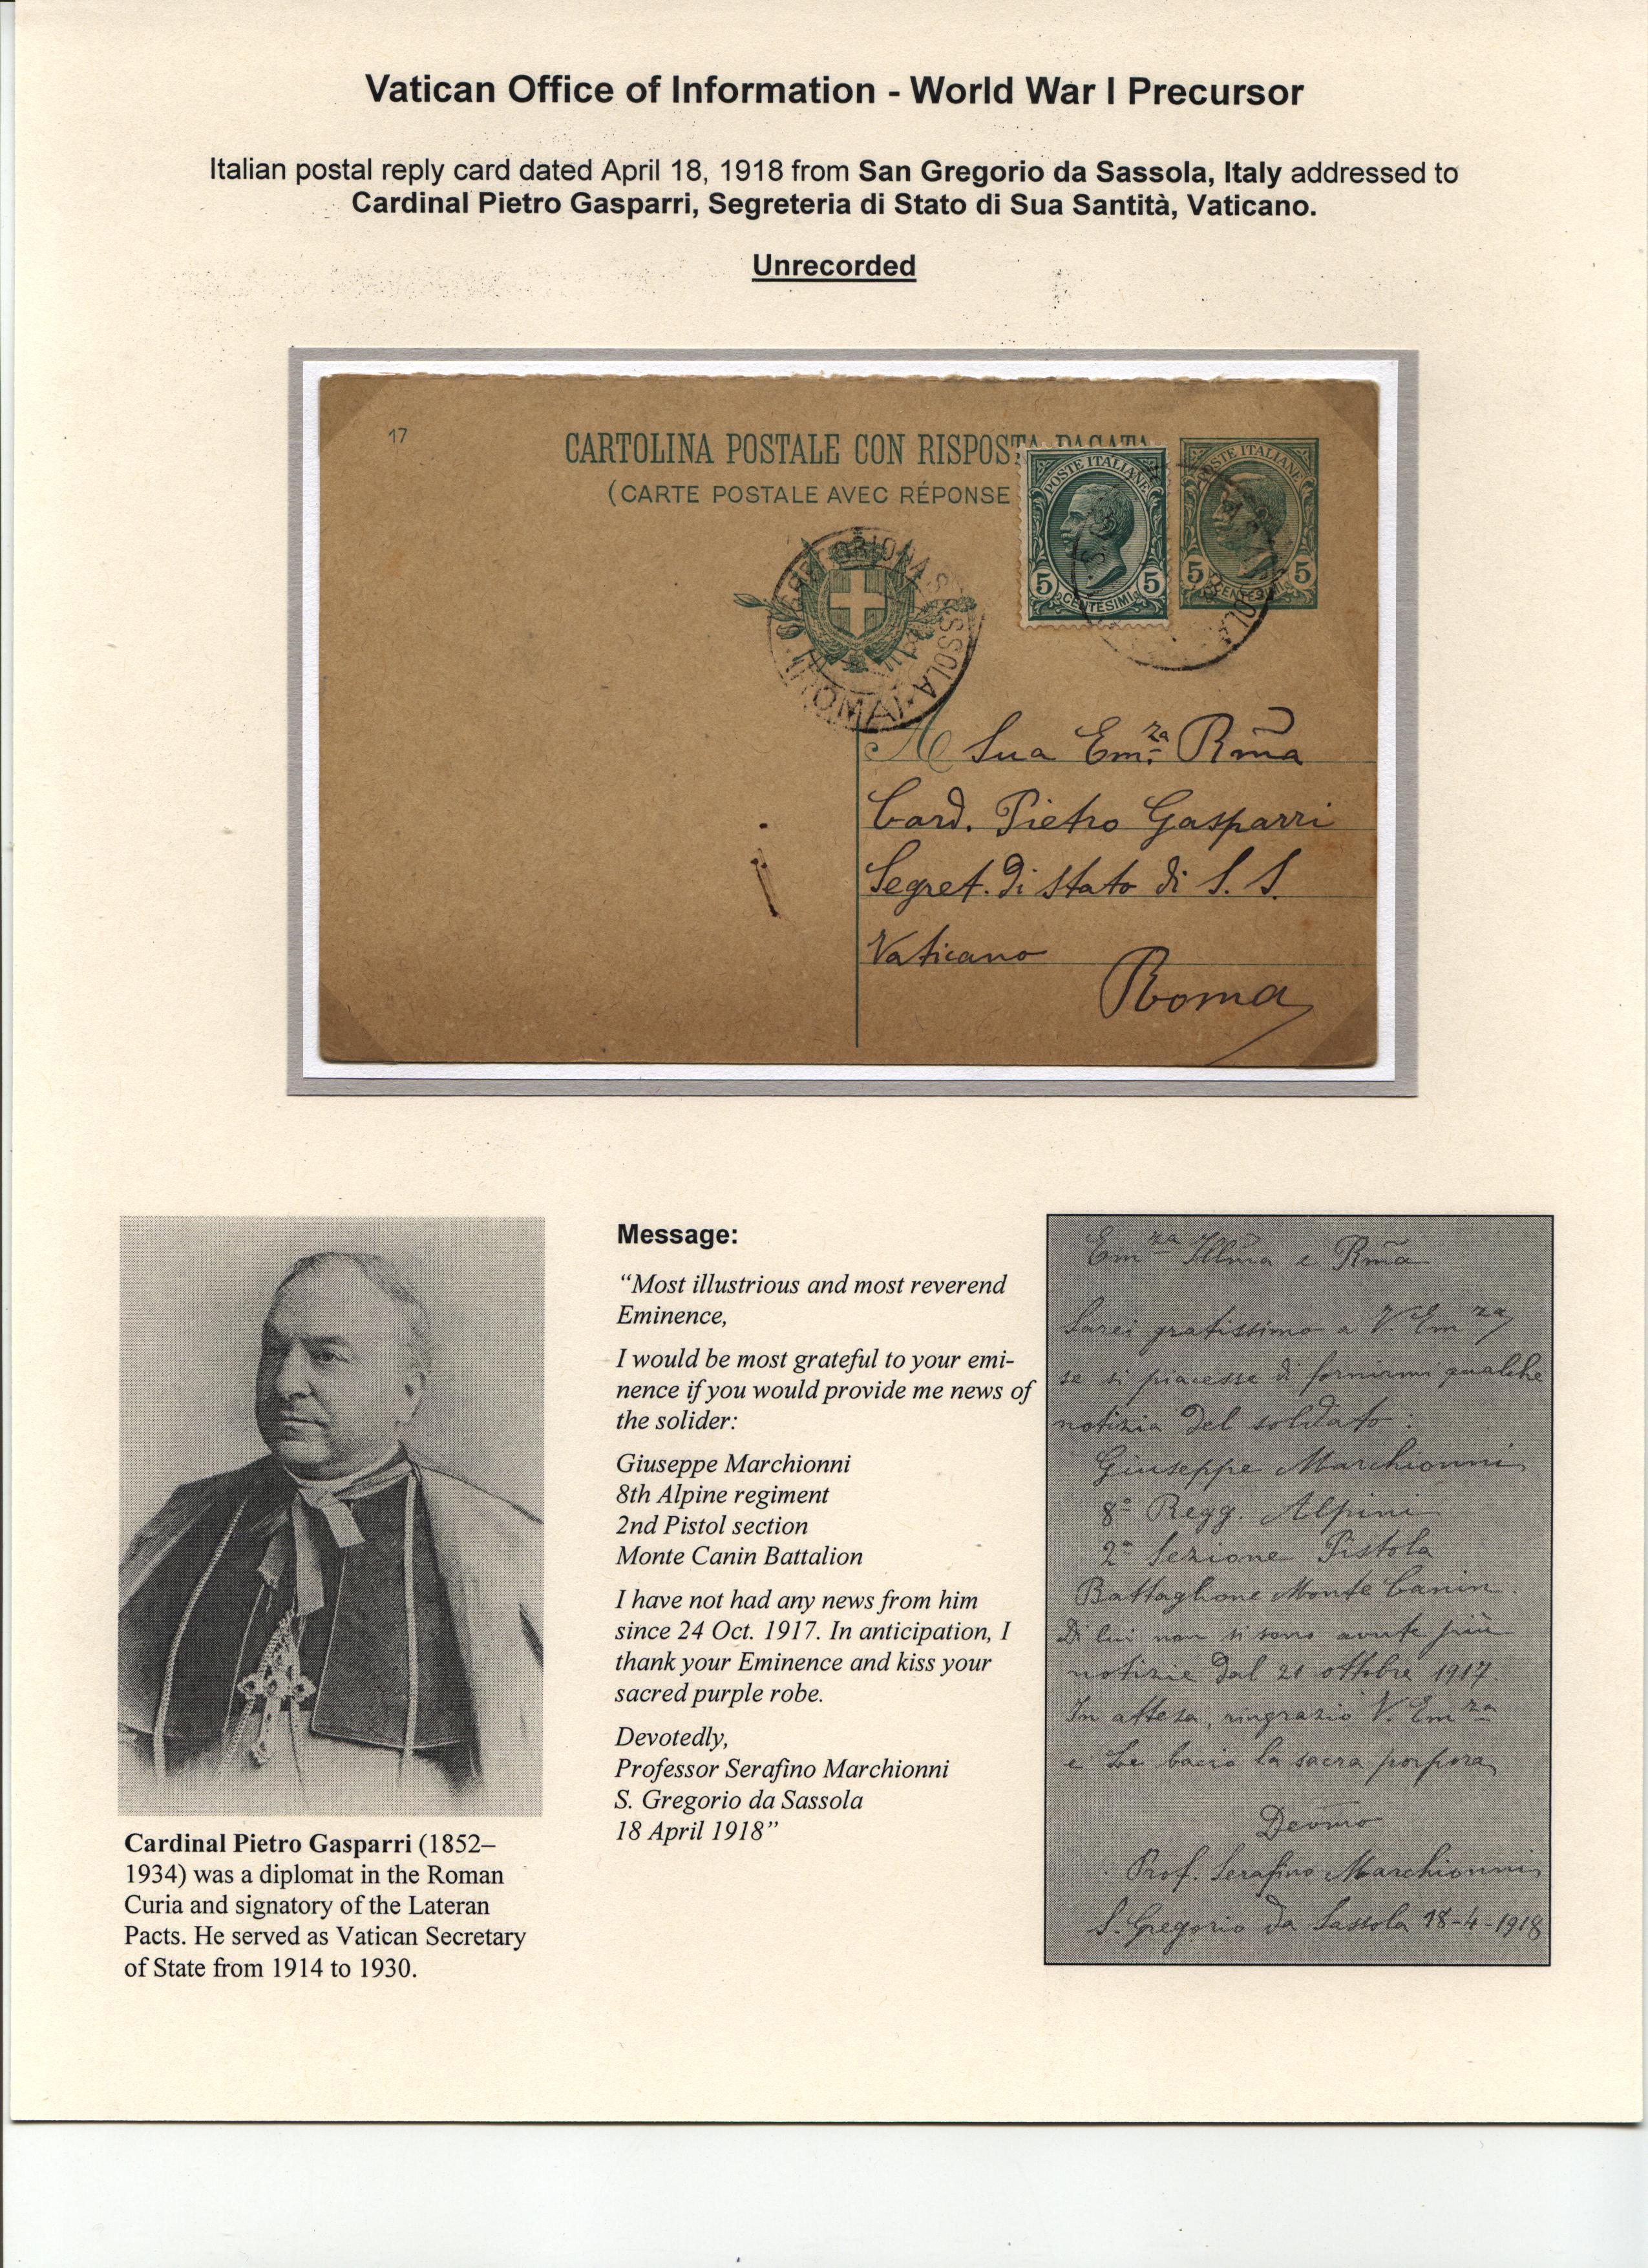 Vatican Office of Information - World War I Precursor
Italian postal reply card dated April 18, 1918 from San Gregorio da Sassola, Italy addressed to
Cardinal Pietro Gasparri, Segreteria di Stato di Sua Santità, Vaticano.
Unrecorded
17
CARTOLINA POSTALE CON RISPOSTA PAGATA
(CARTE POSTALE AVEC RÉPONSE
POSTE ITALIANE
5 CENTESIMI 5
POSTE ITALIANE
5 CENTESIMI 5
SASSOLA
(ROMA)
A Sua Em.za Rm̃a
Card. Pietro Gasparri
Segret. di Stato di S. S.
Vaticano
Roma
Message:
“Most illustrious and most reverend
Eminence,
I would be most grateful to your emi-
nence if you would provide me news of
the solider:
Giuseppe Marchionni
8th Alpine regiment
2nd Pistol section
Monte Canin Battalion
I have not had any news from him
since 24 Oct. 1917. In anticipation, I
thank your Eminence and kiss your
sacred purple robe.
Devotedly,
Professor Serafino Marchionni
S. Gregorio da Sassola
18 April 1918”
Em.za Illm̃a e Rm̃a
Sarei gratissimo a V. Em.za
se si piacesse di fornirmi qualche
notizia del soldato:
Giuseppe Marchionni
8º Regg. Alpini
2ª Sezione Pistola
Battaglione Monte Canin.
Di lui non si sono avute più
notizie dal 21 ottobre 1917.
In attesa, ringrazio V. Em.za
e Le bacio la sacra porpora
Devm̃o
Prof. Serafino Marchionni
S. Gregorio da Sassola 18-4-1918
Cardinal Pietro Gasparri (1852–
1934) was a diplomat in the Roman
Curia and signatory of the Lateran
Pacts. He served as Vatican Secretary
of State from 1914 to 1930.